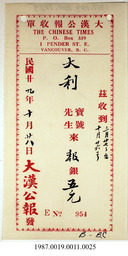 大漢公報收單
THE CHINESE TIMES
P. O. Box 339
1 PENDER ST. E.
VANCOUVER, B. C.
茲收到
大利
寶號
先生來報銀五元
民國廿九年十月廿八日
大漢公報發
E Nº 954
1987.0019.0011.0025